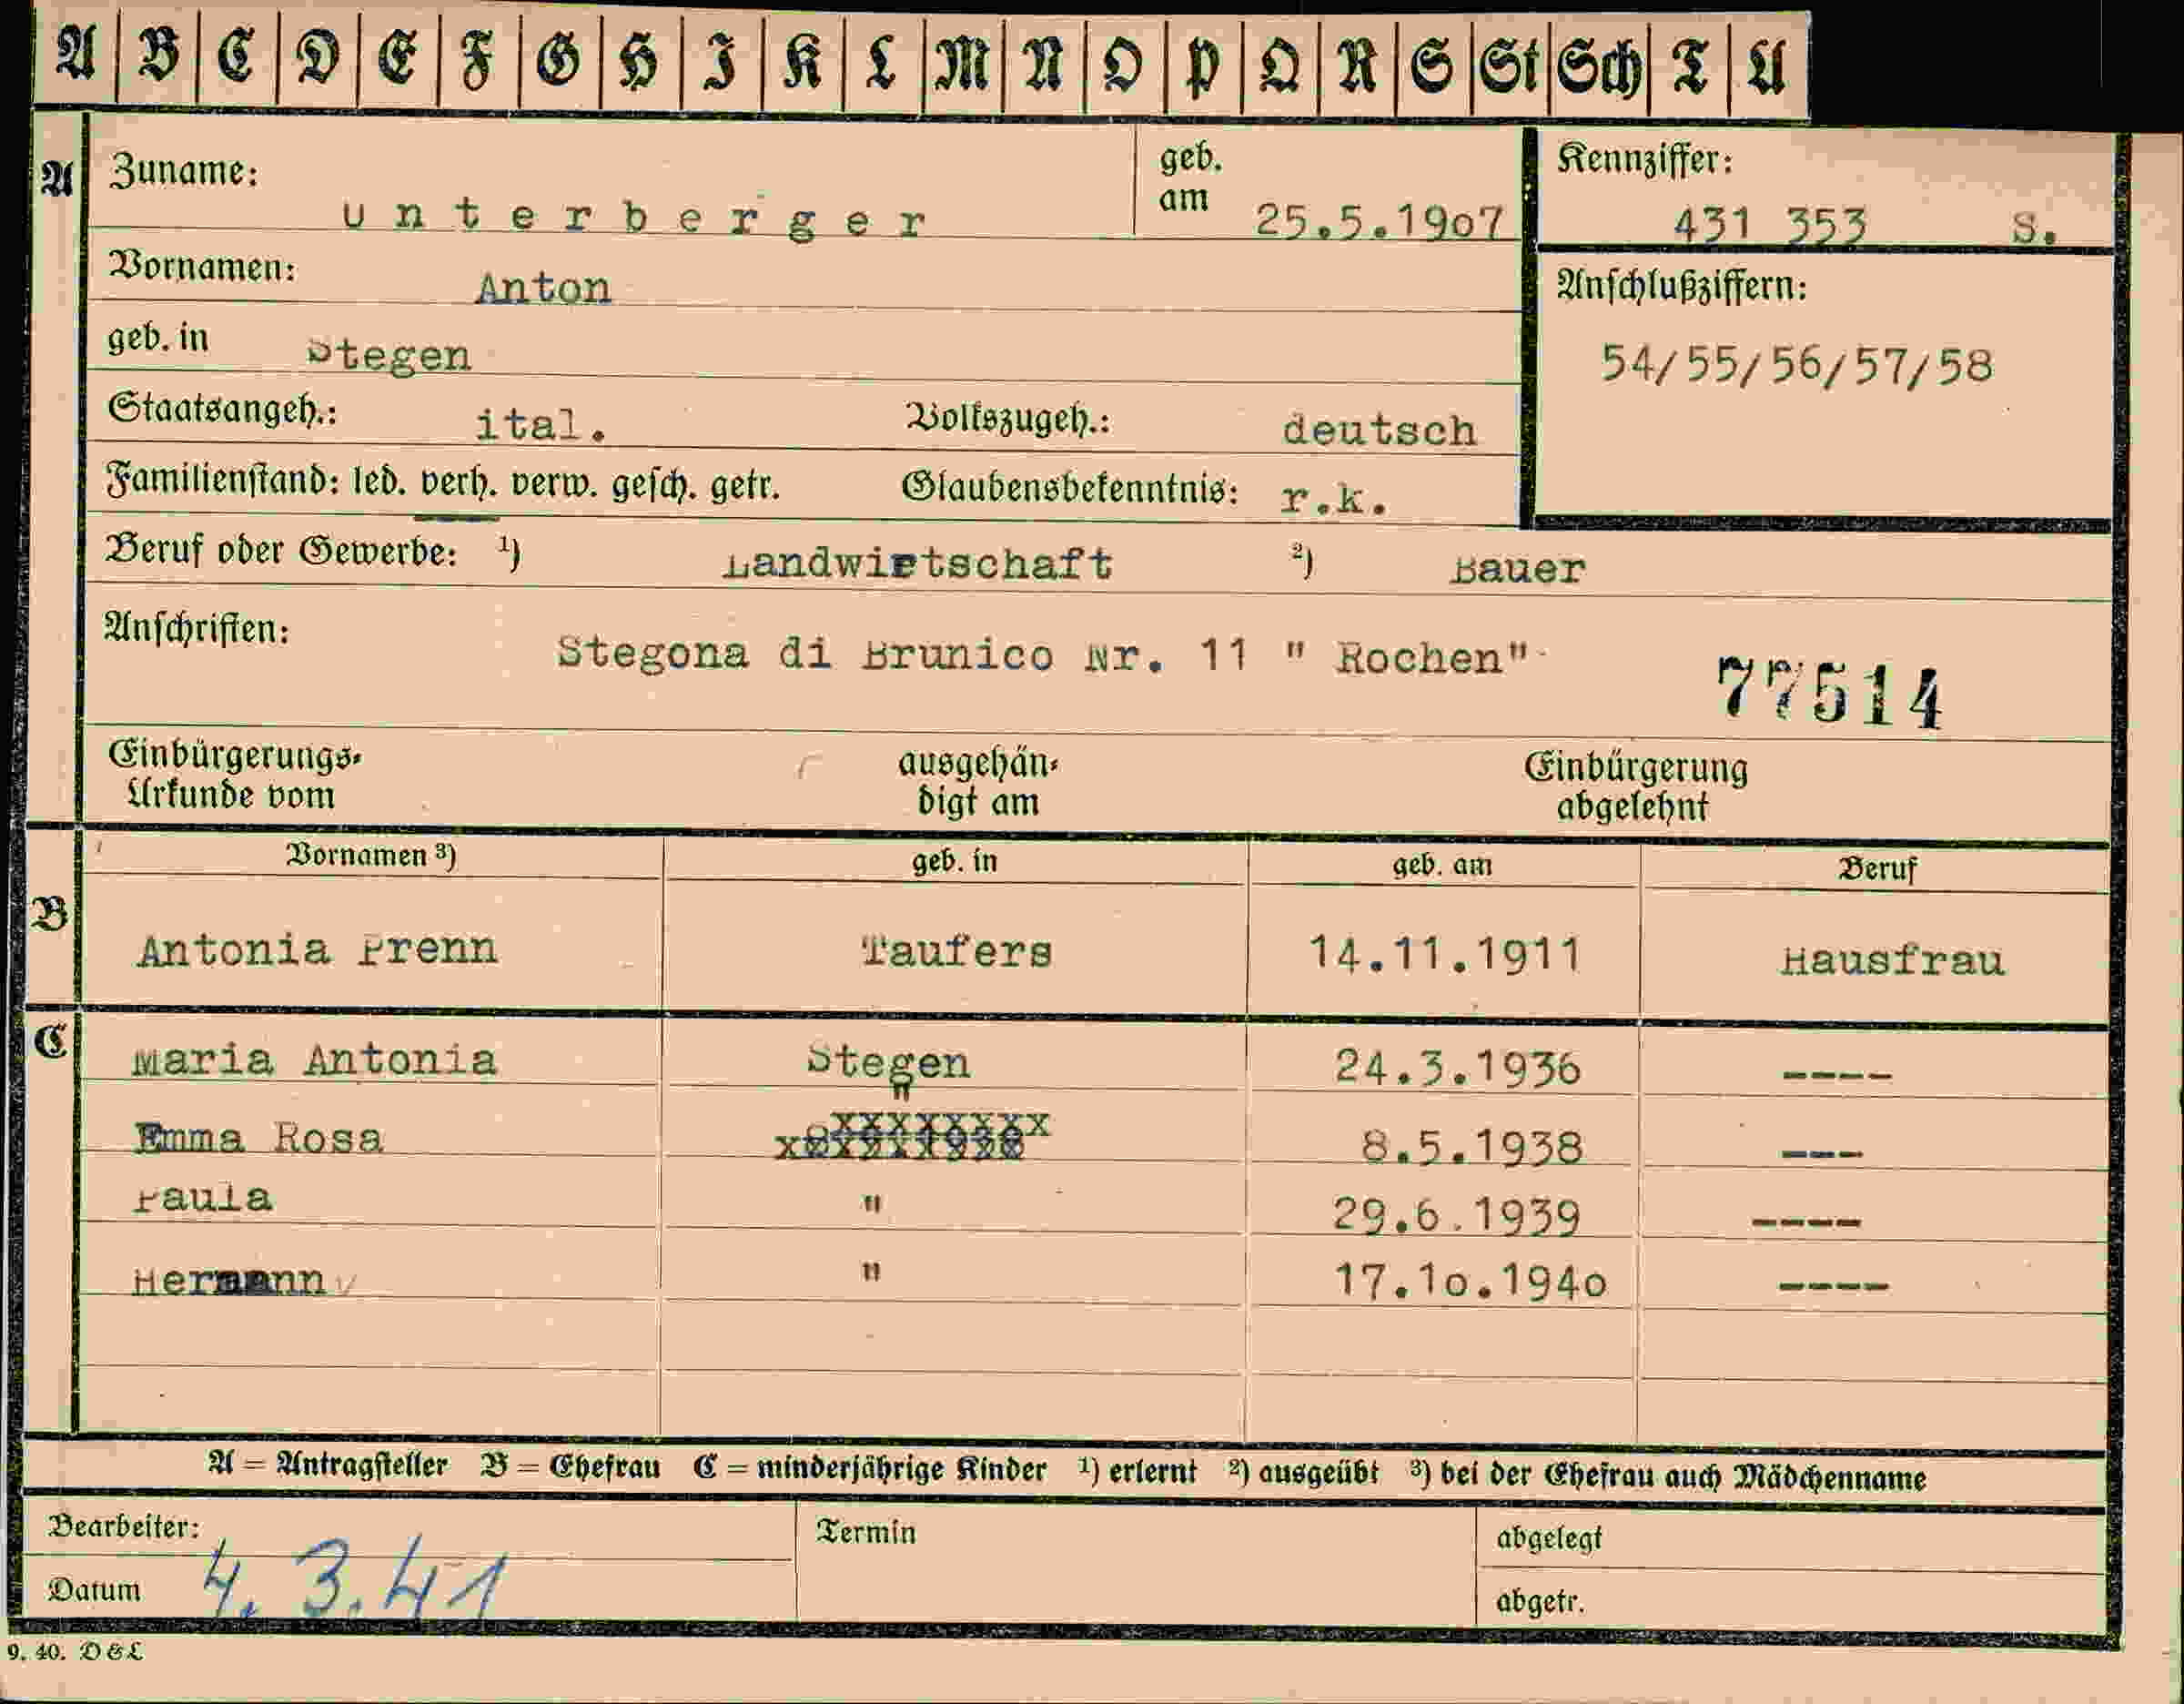 A B C D E F G H I K L M N O P Q R S St Sch T U
A Zuname: Unterberger geb. am 25.5.19o7 Kennziffer: 431 353 S.
Vornamen: Anton Anschlußziffern:
geb. in Stegen 54/55/56/57/58
Staatsangeh.: ital. Volkszugeh.: deutsch
Familienstand: led. verh. verw. gesch. getr. Glaubensbekenntnis: r.k.
Beruf oder Gewerbe: 1) Landwirtschaft 2) Bauer
Anschriften: Stegona di Brunico Nr. 11 " Rochen"
77514
Einbürgerungs- ausgehän- Einbürgerung
Urkunde vom digt am abgelehnt
Vornamen 3) geb. in geb. am Beruf
B Antonia Prenn Taufers 14.11.1911 Hausfrau
C Maria Antonia Stegen 24.3.1936 ----
Emma Rosa " 8.5.1938 ---
Paula " 29.6.1939 ----
Hermann " 17.1o.194o ----
A = Antragsteller B = Ehefrau C = minderjährige Kinder 1) erlernt 2) ausgeübt 3) bei der Ehefrau auch Mädchenname
Bearbeiter: Termin abgelegt
Datum 4.3.41 abgetr.
9. 40. D&L